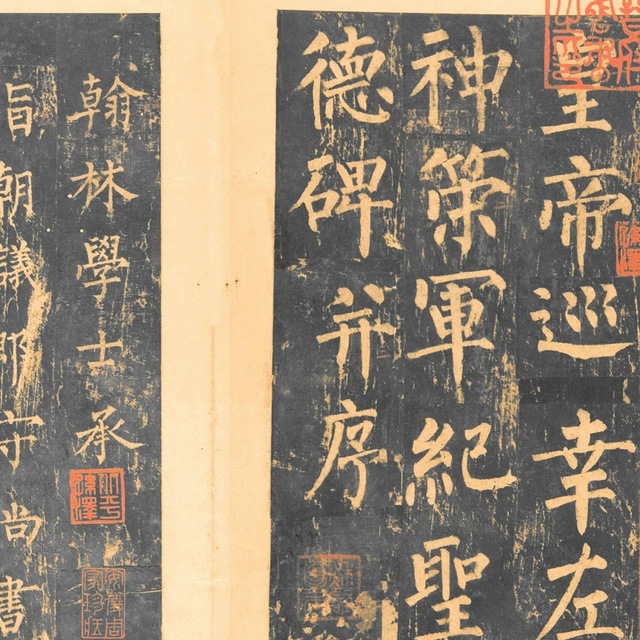 皇帝巡幸左
神策軍紀聖
德碑并序
翰林學士承
旨朝議郎守尚書